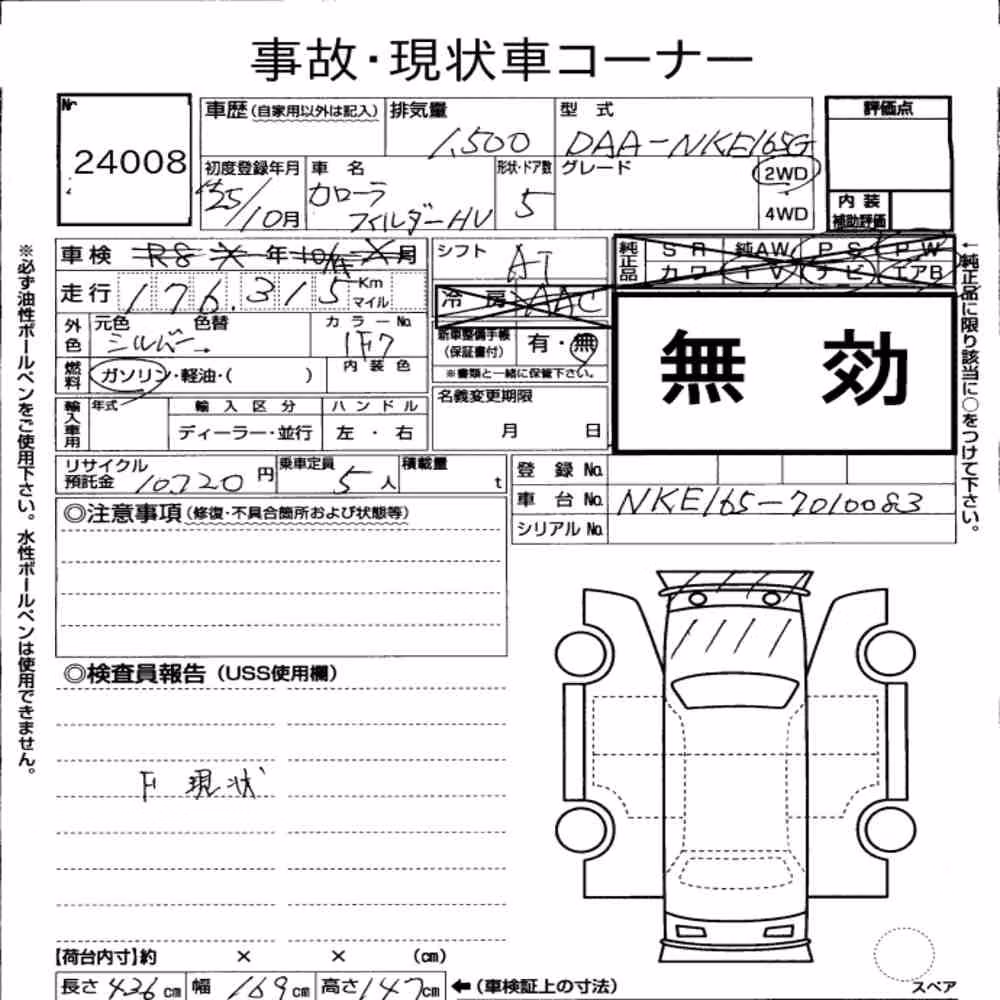 事故・現状車コーナー
№ 24008
車歴(自家用以外は記入) 排気量 1,500 型式 DAA-NKE165G 評価点
初度登録年月 '25/10月 車名 カローラ フィルダーHV 形状・ドア数 5 グレード 2WD・4WD
内装補助評価
車検 R8 年 10/ 月 シフト AT 純正品 SR 純AW PS PW
カワ TV ナビ エアB
走行 176,315 Km マイル 冷房 AAC
外色 元色 シルバー 色替 カラーNo. 1F7 新車整備手帳(保証書付) 有・無
※書類と一緒に保管下さい。
無効
燃料 ガソリン・軽油・( ) 内装色
輸入車用 年式 輸入区分 ディーラー・並行 ハンドル 左・右 名義変更期限 月 日
リサイクル預託金 10720円 乗車定員 5人 積載量 t 登録No.
車台No. NKE165-7010083
シリアルNo.
◎注意事項(修復・不具合箇所および状態等)
◎検査員報告(USS使用欄)
F 現状
【荷台内寸】約 × × (cm)
長さ 436cm 幅 169cm 高さ 147cm ←(車検証上の寸法)
スペア
※必ず油性ボールペンをご使用下さい。水性ボールペンは使用できません。
←純正品に限り該当に○をつけて下さい。